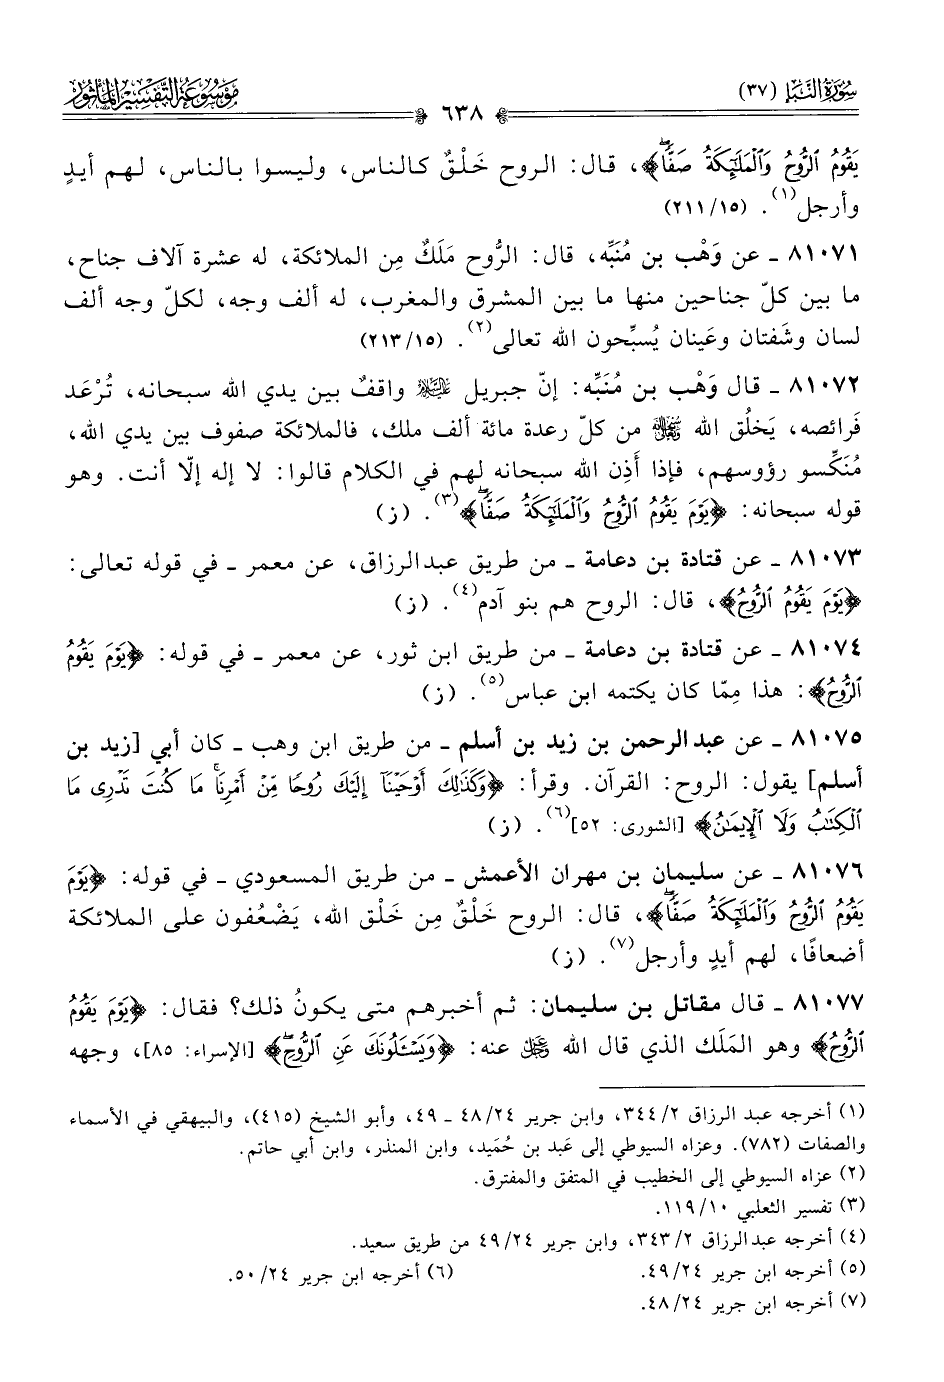 سُورَةُ النَّبَإِ (٣٧)
٦٣٨
مَوْسُوعَةُ التَّفْسِيرِ المَأْثُورِ
يَقُومُ ٱلرُّوحُ وَٱلْمَلَٰٓئِكَةُ صَفًّاۖ﴾، قال: الروح خَلْقٌ كالناس، وليسوا بالناس، لهم أيدٍ
وأرجل(١). (٢١١/١٥)
٨١٠٧١ ـ عن وَهْب بن مُنَبِّه، قال: الرُّوح مَلَكٌ مِن الملائكة، له عشرة آلاف جناح،
ما بين كلّ جناحين منها ما بين المشرق والمغرب، له ألف وجه، لكلّ وجه ألف
لسان وشَفتان وعَينان يُسبِّحون الله تعالى(٢). (٢١٣/١٥)
٨١٠٧٢ ـ قال وَهْب بن مُنَبِّه: إنّ جبريل عليه السلام واقفٌ بين يدي الله سبحانه، تُرْعَد
فَرائصه، يَخلُق الله تعالى من كلّ رعدة مائة ألف ملك، فالملائكة صفوف بين يدي الله،
مُنَكِّسو رؤوسهم، فإذا أَذِن الله سبحانه لهم في الكلام قالوا: لا إله إلّا أنت. وهو
قوله سبحانه: ﴿يَوْمَ يَقُومُ ٱلرُّوحُ وَٱلْمَلَٰٓئِكَةُ صَفًّاۖ﴾(٣). (ز)
٨١٠٧٣ ـ عن قتادة بن دعامة ـ من طريق عبدالرزاق، عن معمر ـ في قوله تعالى:
﴿يَوْمَ يَقُومُ ٱلرُّوحُ﴾، قال: الروح هم بنو آدم(٤). (ز)
٨١٠٧٤ ـ عن قتادة بن دعامة ـ من طريق ابن ثور، عن معمر ـ في قوله: ﴿يَوْمَ يَقُومُ
ٱلرُّوحُ﴾: هذا مِمّا كان يكتمه ابن عباس(٥). (ز)
٨١٠٧٥ ـ عن عبدالرحمن بن زيد بن أسلم ـ من طريق ابن وهب ـ كان أبي [زيد بن
أسلم] يقول: الروح: القرآن. وقرأ: ﴿وَكَذَٰلِكَ أَوْحَيْنَآ إِلَيْكَ رُوحًا مِّنْ أَمْرِنَاۚ مَا كُنتَ تَدْرِى مَا
ٱلْكِتَٰبُ وَلَا ٱلْإِيمَٰنُ﴾ [الشورى: ٥٢](٦). (ز)
٨١٠٧٦ ـ عن سليمان بن مهران الأعمش ـ من طريق المسعودي ـ في قوله: ﴿يَوْمَ
يَقُومُ ٱلرُّوحُ وَٱلْمَلَٰٓئِكَةُ صَفًّاۖ﴾، قال: الروح خَلْقٌ مِن خَلْق الله، يَضْعُفون على الملائكة
أضعافًا، لهم أيدٍ وأرجل(٧). (ز)
٨١٠٧٧ ـ قال مقاتل بن سليمان: ثم أخبرهم متى يكونُ ذلك؟ فقال: ﴿يَوْمَ يَقُومُ
ٱلرُّوحُ﴾ وهو المَلَك الذي قال الله عز وجل عنه: ﴿وَيَسْـَٔلُونَكَ عَنِ ٱلرُّوحِۖ﴾ [الإسراء: ٨٥]، وجهه
(١) أخرجه عبد الرزاق ٢/ ٣٤٤، وابن جرير ٢٤/ ٤٨ ـ ٤٩، وأبو الشيخ (٤١٥)، والبيهقي في الأسماء
والصفات (٧٨٢). وعزاه السيوطي إلى عَبد بن حُمَيد، وابن المنذر، وابن أبي حاتم.
(٢) عزاه السيوطي إلى الخطيب في المتفق والمفترق.
(٣) تفسير الثعلبي ١٠/ ١١٩.
(٤) أخرجه عبدالرزاق ٢/ ٣٤٣، وابن جرير ٢٤/ ٤٩ من طريق سعيد.
(٥) أخرجه ابن جرير ٢٤/ ٤٩.
(٦) أخرجه ابن جرير ٢٤/ ٥٠.
(٧) أخرجه ابن جرير ٢٤/ ٤٨.